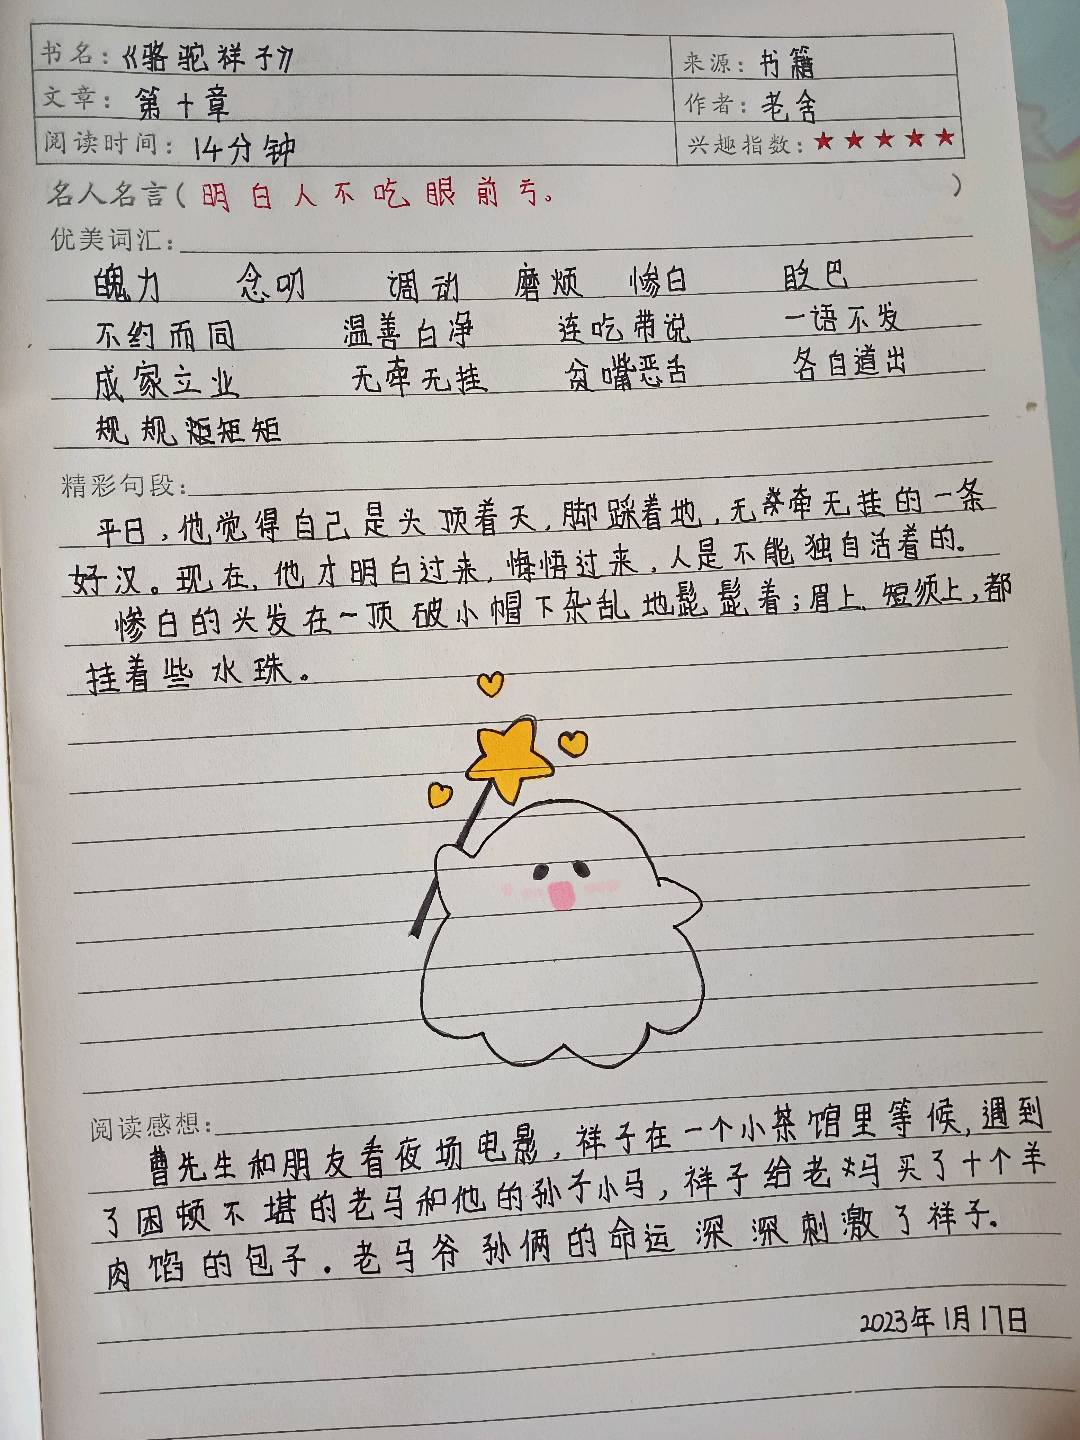 书名：《骆驼祥子》 来源：书籍
文章：第十章 作者：老舍
阅读时间：14分钟 兴趣指数：★★★★★
名人名言（明白人不吃眼前亏。）
优美词汇：
魄力 念叨 调动 磨烦 惨白 眨巴
不约而同 温善白净 连吃带说 一语不发
成家立业 无牵无挂 贫嘴恶舌 各自道出
规规矩矩
精彩句段：
平日，他觉得自己是头顶着天，脚踩着地，无牵无挂的一条
好汉。现在，他才明白过来，悔悟过来，人是不能独自活着的。
惨白的头发在一顶破小帽下杂乱地髭髭着；眉上、短须上，都
挂着些水珠。
阅读感想：
曹先生和朋友看夜场电影，祥子在一个小茶馆里等候，遇到
了困顿不堪的老马和他的孙子小马，祥子给老马买了十个羊
肉馅的包子。老马爷孙俩的命运深深刺激了祥子。
2023年1月17日